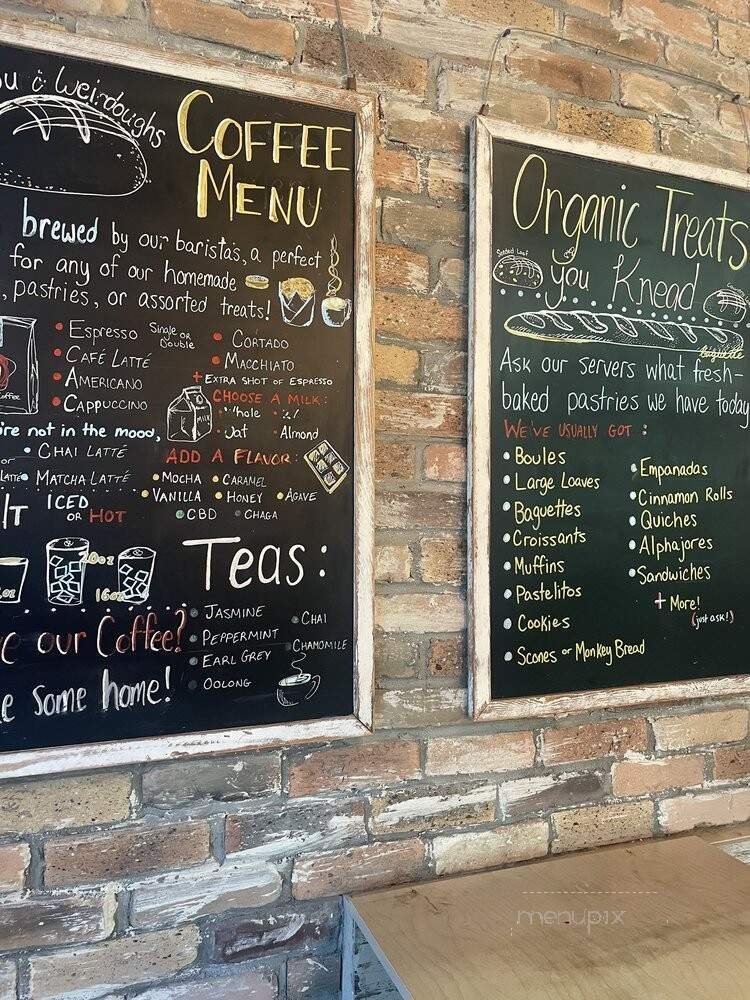 & Weirdoughs
COFFEE
MENU
brewed by our baristas, a perfect
for any of our homemade
, pastries, or assorted treats!
Espresso Single or Double
CAFÉ LATTÉ
AMERICANO
CAPPUCCINO
CORTADO
MACCHIATO
+ EXTRA SHOT OF ESPRESSO
CHOOSE A MILK:
MILK
Almond
're not in the mood,
or CHAI LATTÉ
MATCHA LATTÉ
ADD A FLAVOR:
MOCHA CARAMEL
VANILLA HONEY AGAVE
CBD CHAGA
IT ICED
OR HOT
oz 20oz 16oz
TEAS:
JASMINE
PEPPERMINT
EARL GREY
OOLONG
CHAI
CHAMOMILE
our Coffee?
some home!
Organic Treats
Seeded Loaf
you Knead
baguette
Ask our servers what fresh-
baked pastries we have today
WE'VE USUALLY GOT :
Boules
Large Loaves
Baguettes
Croissants
Muffins
Pastelitos
Cookies
Scones or Monkey Bread
Empanadas
Cinnamon Rolls
Quiches
Alphajores
Sandwiches
+ More!
(just ask!)
menupix